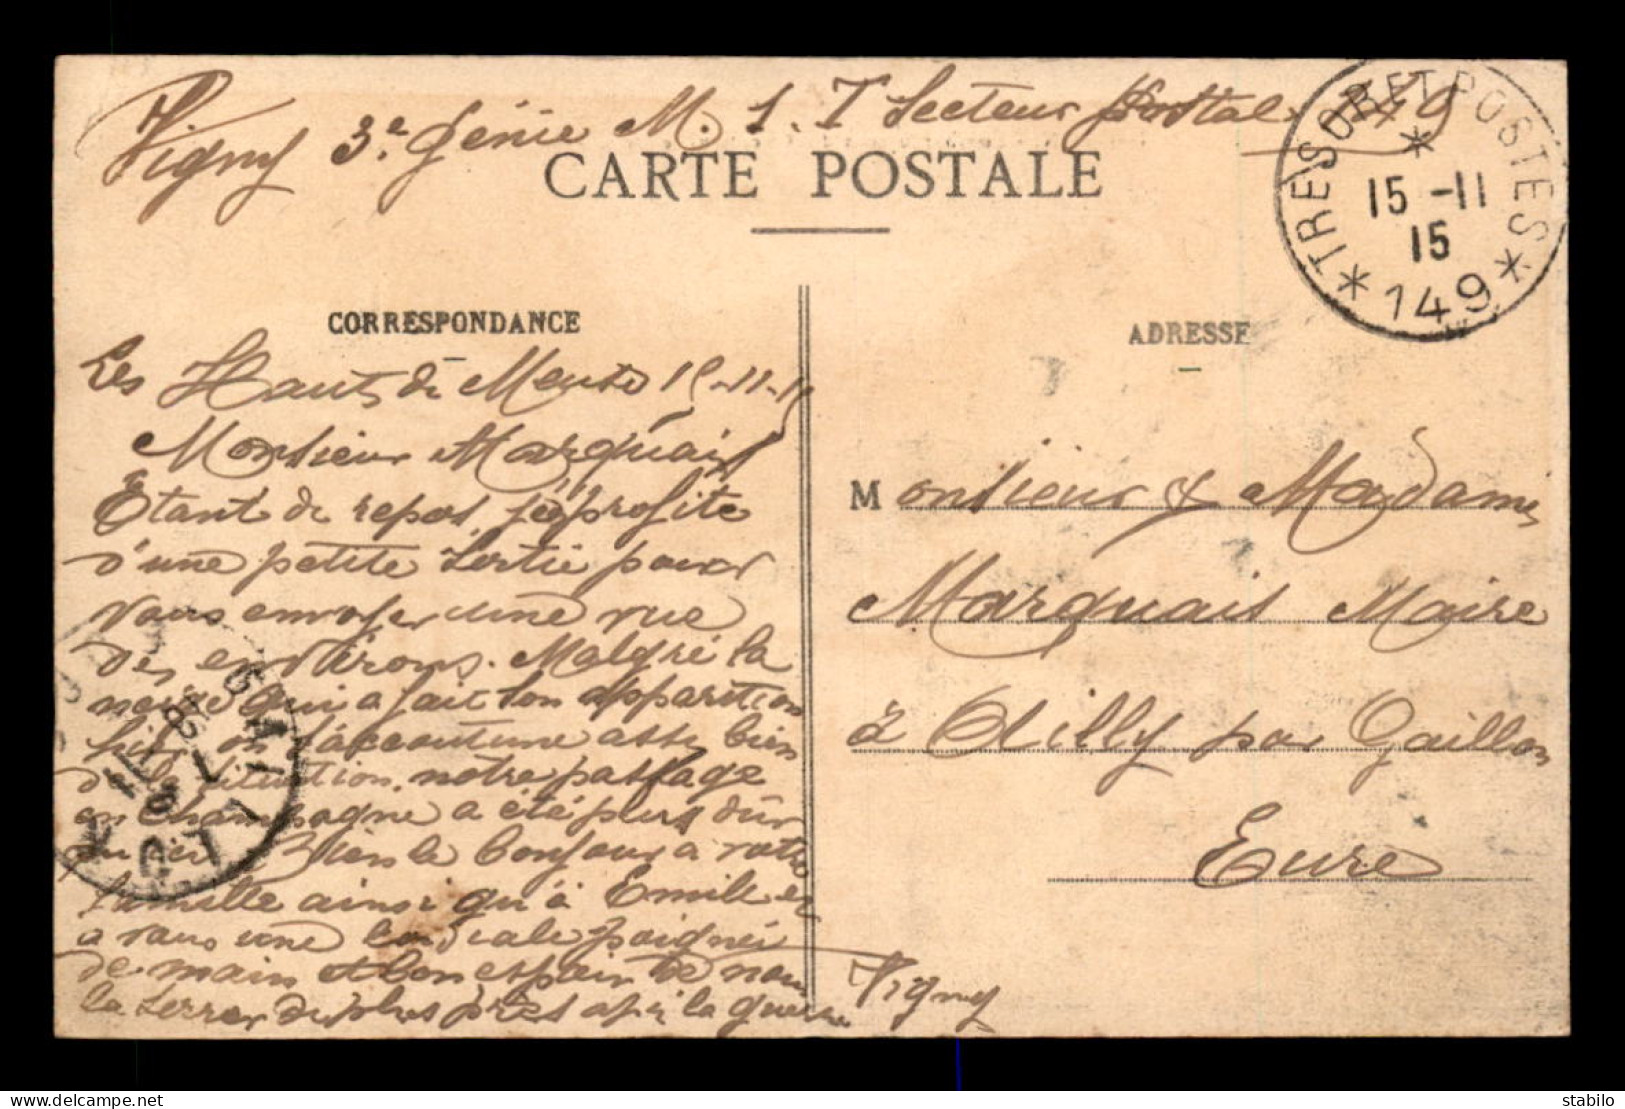 Vigny 3e Génie M. 1. T Secteur postal 149
CARTE POSTALE
TRESOR ET POSTES
15 -11
15
* 149 *
CORRESPONDANCE
Les Hauts de Meuse 15-11-15
Monsieur Marquais
Etant de repos, je profite
d'une petite sortie pour
vous envoyer une vue
des environs. Malgré la
neige qui a fait son apparition
hier on s'accoutume assez bien
de la situation, notre passage
en Champagne a été plus dur
qu'ici Bien le bonjour a votre
famille ainsi qu'à Emile et
a vous une cordiale poignée
de main et bon espoir de nous
la serrer de plus près après la guerre
Vigny
ADRESSE
Monsieur & Madame
Marquais Maire
à Ailly par Gaillon
Eure
stabilo | delcampe.net